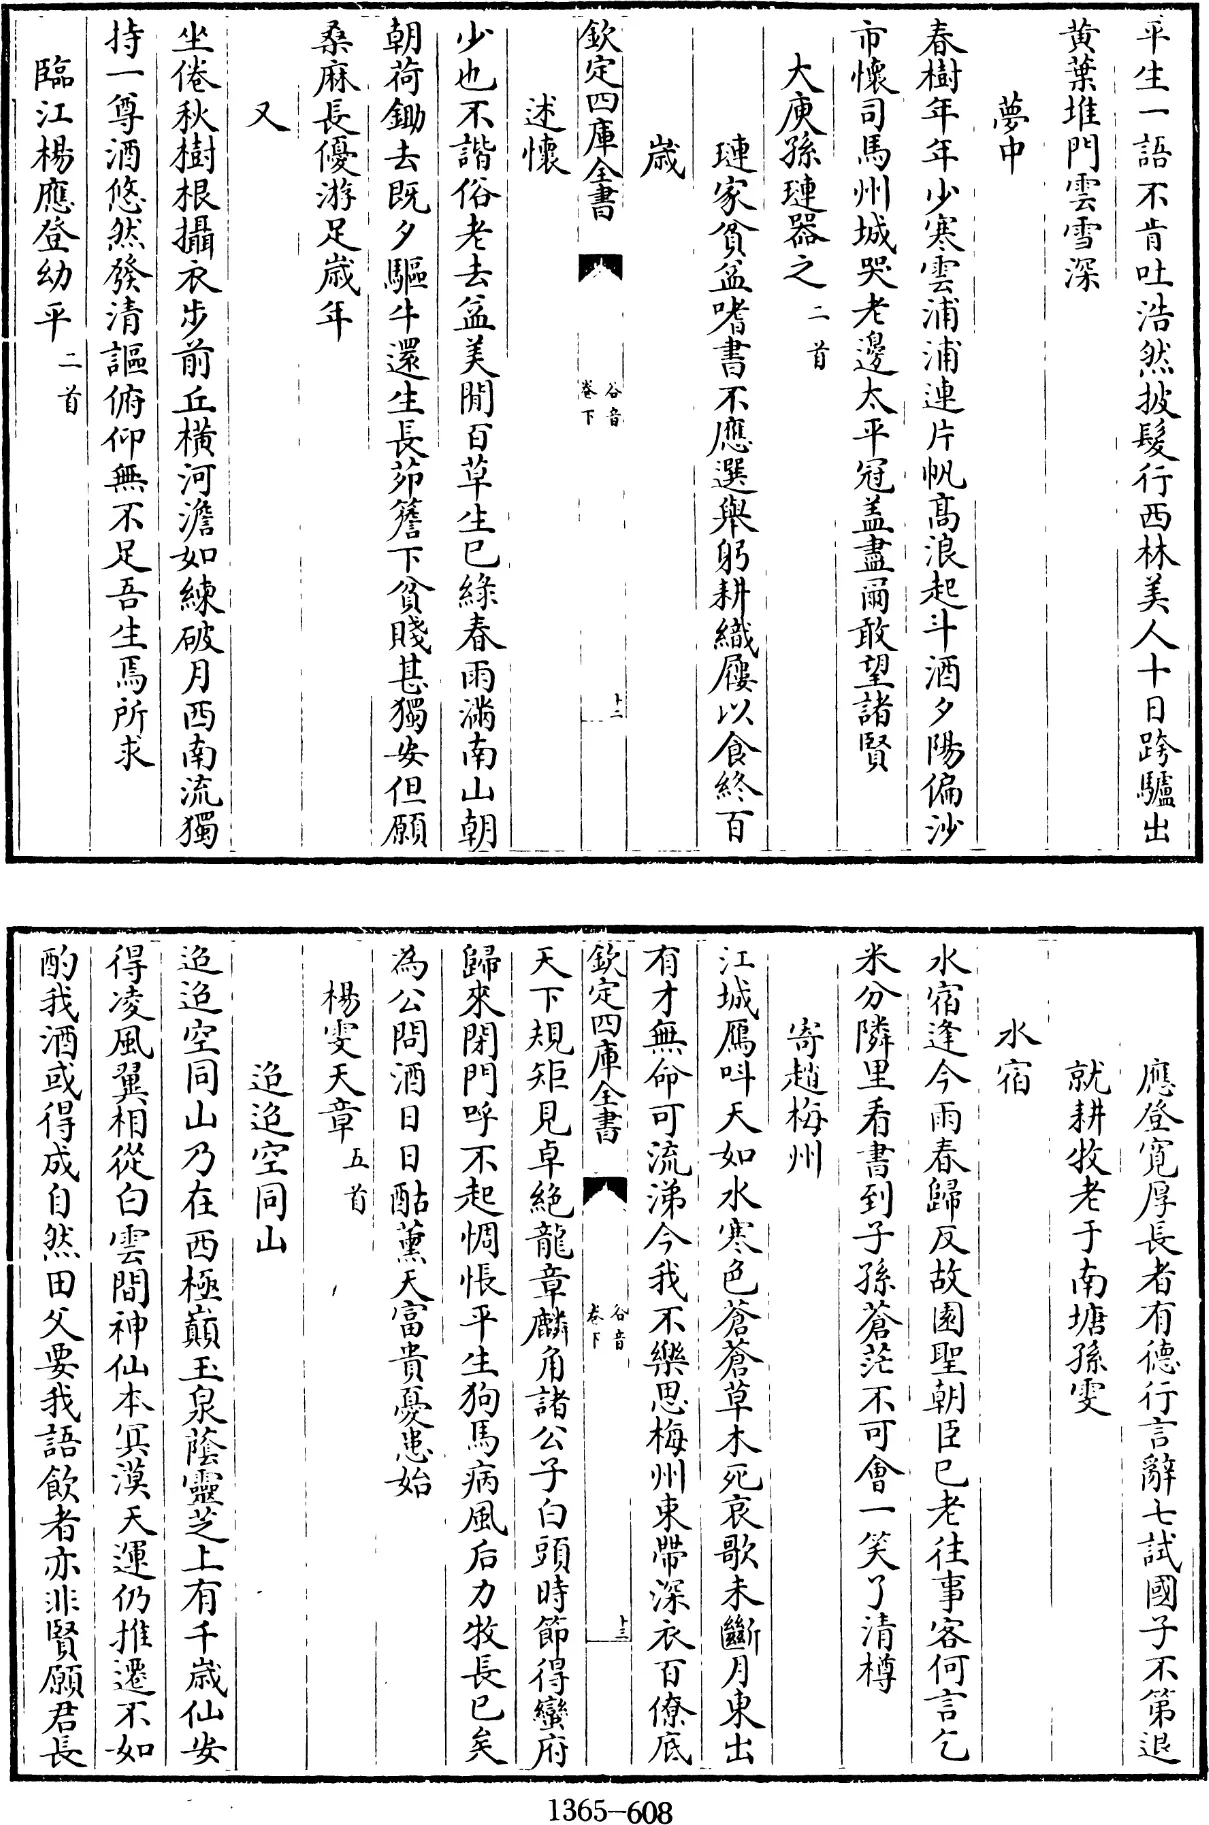 平生一語不肯吐浩然披髮行西林美人十日跨驢出
黄葉堆門雲雪深
夢中
春樹年年少寒雲浦浦連片帆髙浪起斗酒夕陽偏沙
市懷司馬州城哭老邊太平冠盖盡爾敢望諸賢
大庾孫璉器之二首
璉家貧益嗜書不應選舉躬耕織屨以食終百
歳
欽定四庫全書
谷音
卷下
十二
述懷
少也不諧俗老去益美閒百草生已綠春雨滿南山朝
朝荷鋤去既夕驅牛還生長茆簷下貧賤甚獨安但願
桑麻長優游足歳年
又
坐倦秋樹根攝衣步前丘横河澹如練破月西南流獨
持一尊酒悠然發清謳俯仰無不足吾生焉所求
臨江楊應登幼平二首
應登寛厚長者有德行言辭七試國子不第退
就耕牧老于南塘孫雯
水宿
水宿逢今雨春歸反故園聖朝臣已老往事客何言乞
米分隣里看書到子孫蒼茫不可會一笑了清樽
寄趙梅州
江城鴈呌天如水寒色蒼蒼草木死哀歌未斷月東出
有才無命可流涕今我不樂思梅州束帶深衣百僚底
欽定四庫全書
谷音
卷下
十三
天下規矩見卓絶龍章麟角諸公子白頭時節得蠻府
歸來閉門呼不起惆悵平生狗馬病風后力牧長已矣
為公問酒日日酤薰天富貴憂患始
楊雯天章五首
迢迢空同山
迢迢空同山乃在西極巔玉泉蔭靈芝上有千歳仙安
得凌風翼相從白雲間神仙本冥漠天運仍推遷不如
酌我酒或得成自然田父要我語飲者亦非賢願君長
1365-608